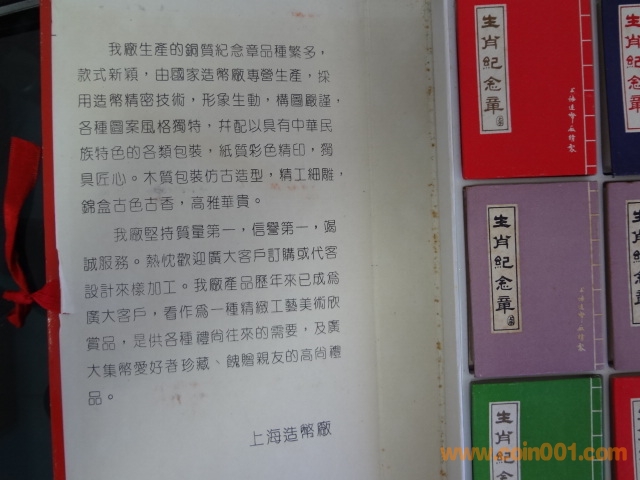 我廠生產的銅質紀念章品種繁多，
款式新穎，由國家造幣廠專營生產，採
用造幣精密技術，形象生動，構圖嚴謹，
各種圖案風格獨特，幷配以具有中華民
族特色的各類包裝，紙質彩色精印，獨
具匠心。木質包裝仿古造型，精工細雕，
錦盒古色古香，高雅華貴。
我廠堅持質量第一，信譽第一，竭
誠服務。熱忱歡迎廣大客戶訂購或代客
設計來樣加工。我廠產品歷年來已成爲
廣大客戶，看作爲一種精緻工藝美術欣
賞品，是供各種禮尙往來的需要，及廣
大集幣愛好者珍藏、餽贈親友的高尚禮
品。
上海造幣廠
生肖紀念章
上海造幣廠
生肖紀念章
上海造幣廠
生肖紀念
www.coin001.com